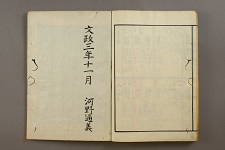 文政三年十一月
河野通義